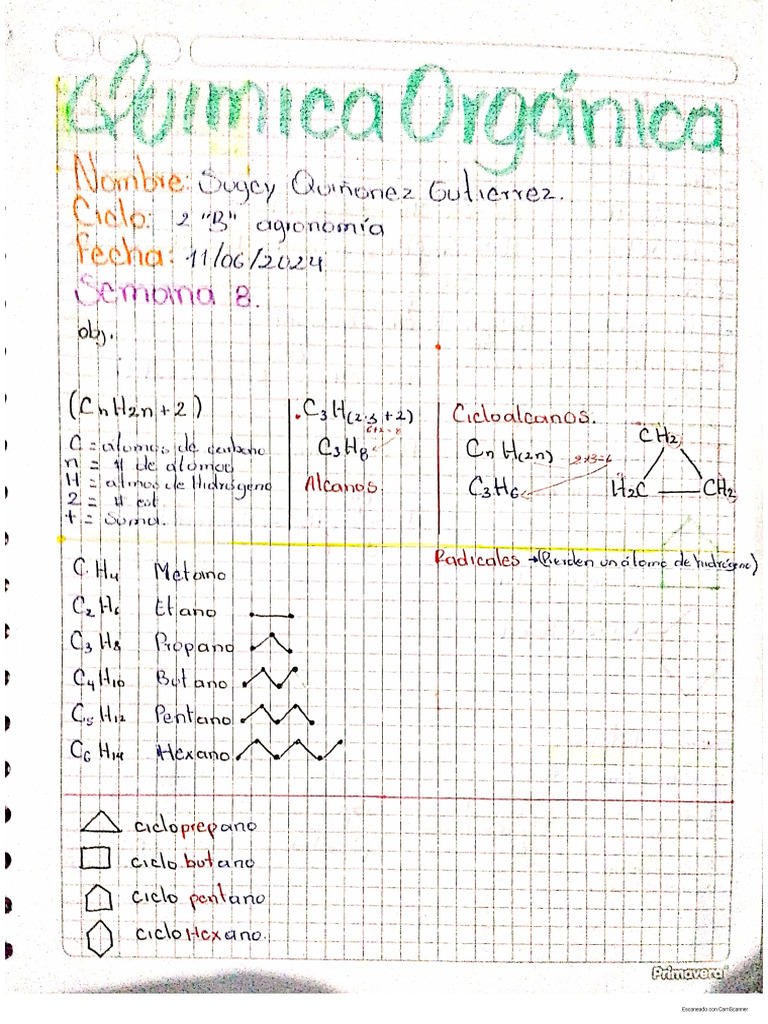 Química Orgánica
Nombre: Sugey Quiñonez Gutierrez.
Ciclo: 2 "B" agronomía
Fecha: 11/06/2024
Semana 8.
obj.
(CnH2n+2)
C = atomos de carbono
n = # de atomos
H = atmos de Hidrógeno
2 = # est
+ = Suma.
C3H(2·3+2)
6+2=8
C3H8
Alcanos.
Cicloalcanos.
CnH(2n)
2×3=6
C3H6
CH2
H2C
CH2
Radicales → (Pierden un átomo de hidrógeno)
CH4 Metano
C2H6 Etano
C3H8 Propano
C4H10 Butano
C5H12 Pentano
C6H14 Hexano
ciclopropano
ciclo butano
ciclo pentano
ciclo Hexano.
Primavera
Escaneado con CamScanner